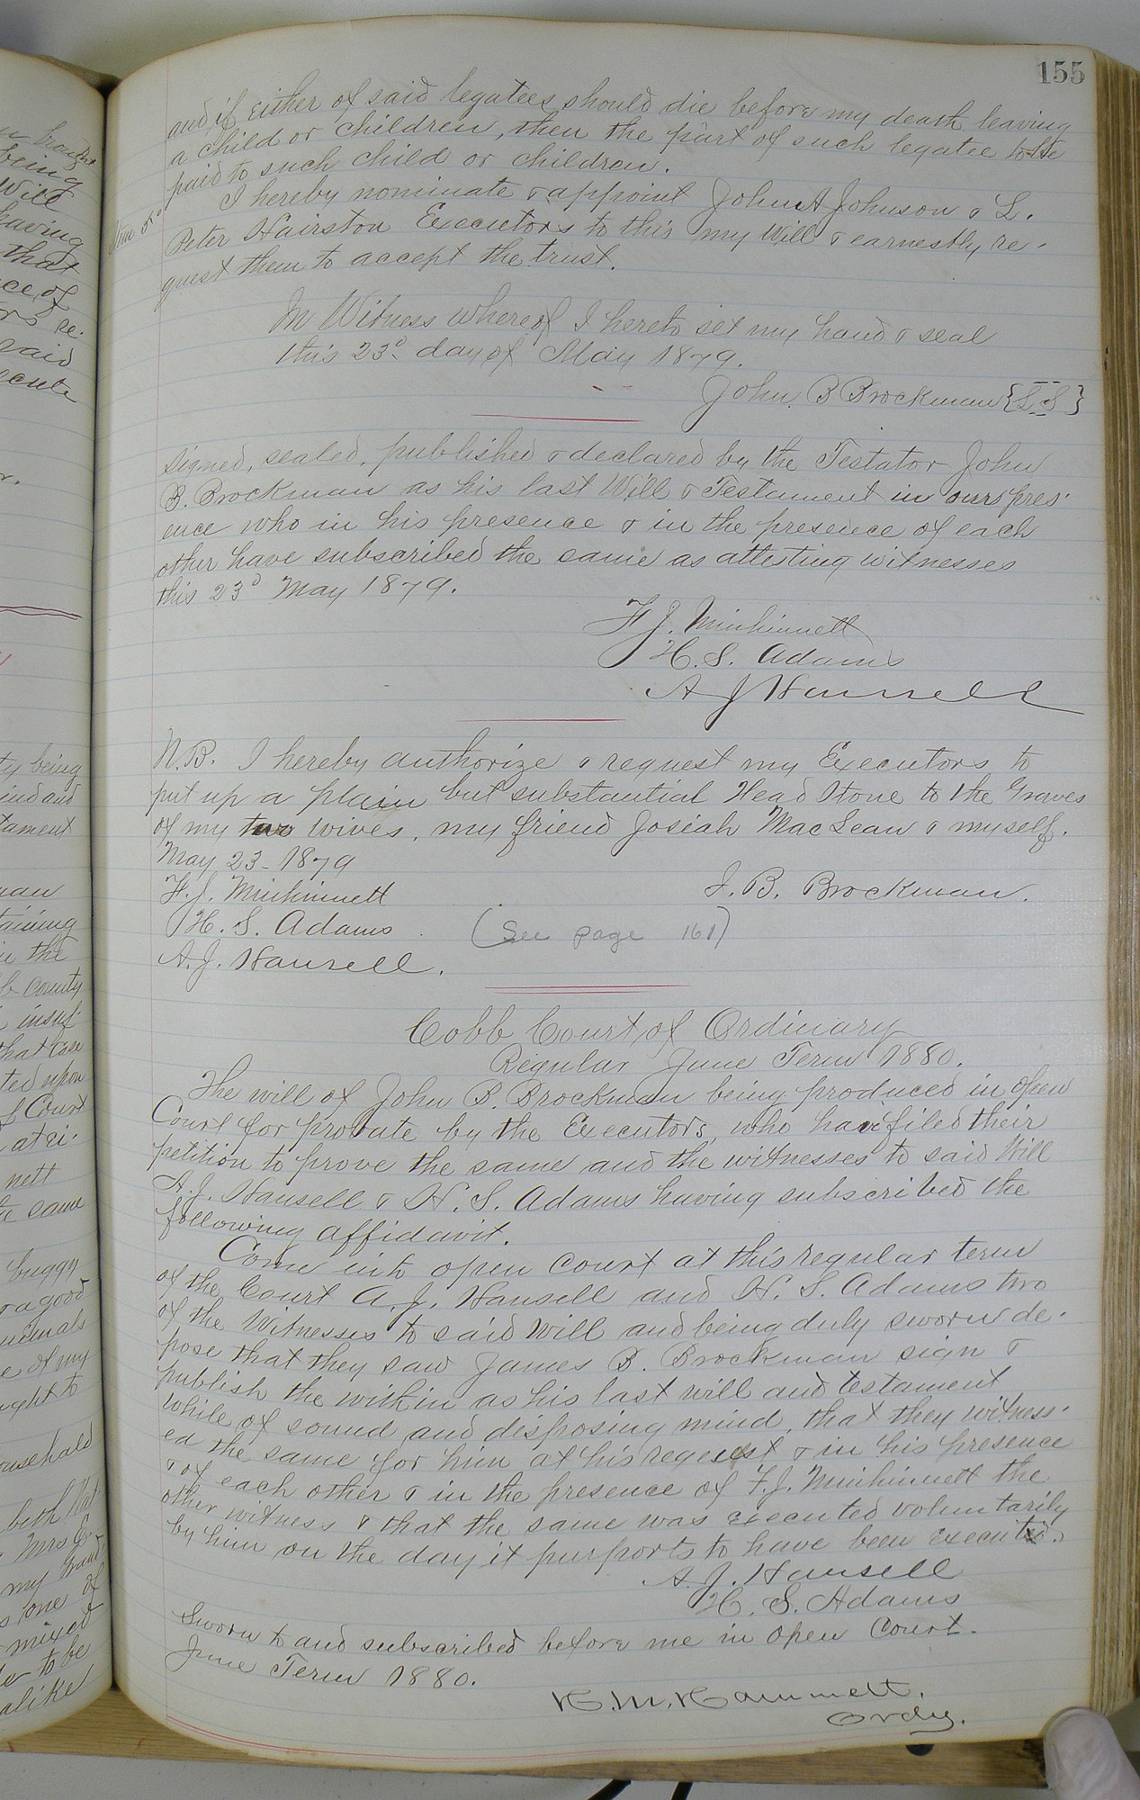 155
and if either of said legatees should die before my death leaving
a child or children, then the part of such legatee to be
paid to such child or children.
I hereby nominate & appoint John A Johnson & L.
Peter Hairston Executors to this my Will & earnestly re-
quest them to accept the trust.
In Witness whereof I hereto set my hand & seal
this 23d day of May 1879.
John B Brockman {L.S}
Signed, sealed, published & declared by the Testator John
B. Brockman as his last Will & Testament in ours pres-
ence who in his presence & in the presence of each
other have subscribed the same as attesting witnesses
this 23d May 1879.
F J. Minhinnett
H. S. Adams
A J Hansell
N.B. I hereby authorize & request my Executors to
put up a plain but substantial Head Stone to the Graves
of my two wives, my friend Josiah MacLean & myself.
May 23- 1879
F. J. Minhinnett
J. B. Brockman.
H. S. Adams
(See page 161)
A. J. Hansell.
Cobb Court of Ordinary
Regular June Term 1880.
The will of John B. Brockman being produced in open
Court for probate by the Executors, who have filed their
petition to prove the same and the witnesses to said Will
A. J. Hansell & H. S. Adams having subscribed the
following affidavit.
Come into open Court at this regular term
of the Court A. J. Hansell and H. S. Adams two
of the Witnesses to said Will and being duly sworn de-
pose that they saw James B. Brockman sign &
publish the within as his last will and testament
while of sound and disposing mind, that they witness-
ed the same for him at his request & in his presence
& of each other & in the presence of F. J. Minhinnett the
other witness & that the same was executed voluntarily
by him on the day it purports to have been executed.
A. J. Hansell
H. S. Adams
Sworn to and subscribed before me in open Court.
June Term 1880.
H. M. Hammett.
Ordy.